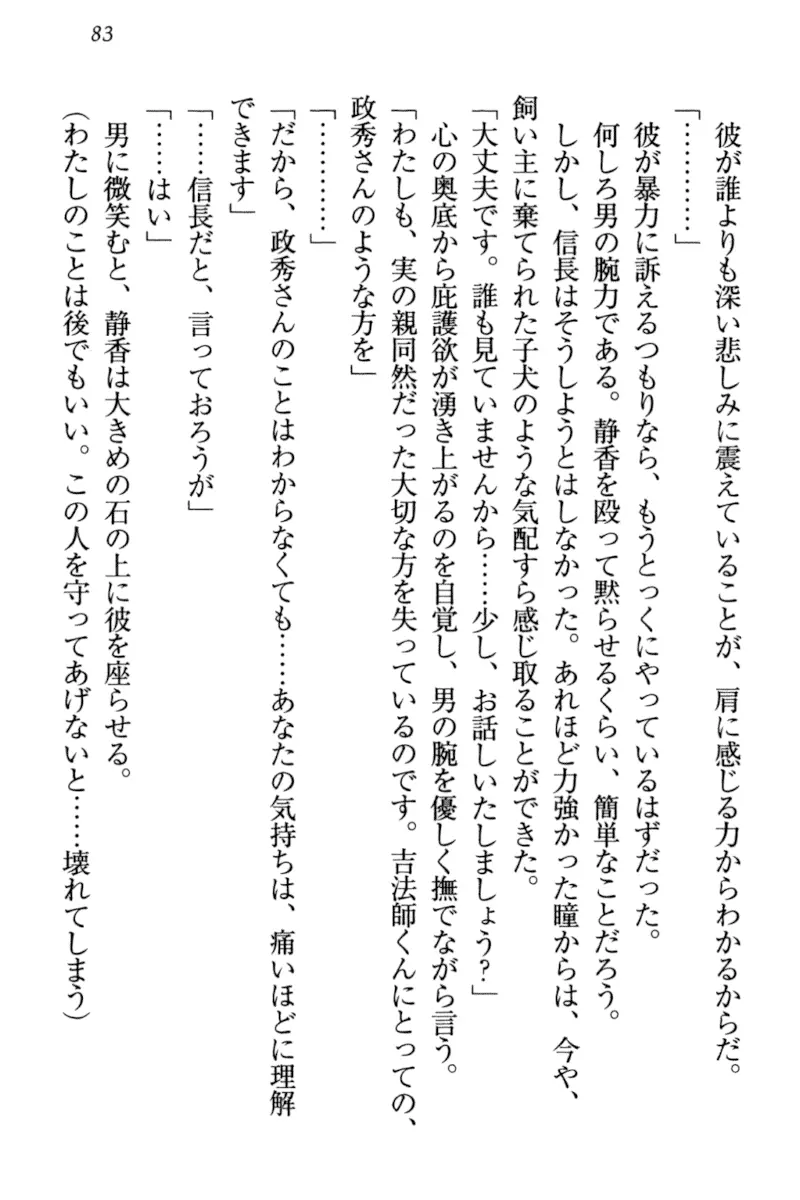 83
彼が誰よりも深い悲しみに震えていることが、肩に感じる力からわかるからだ。
「…………」
彼が暴力に訴えるつもりなら、もうとっくにやっているはずだった。
何しろ男の腕力である。静香を殴って黙らせるくらい、簡単なことだろう。
しかし、信長はそうしようとはしなかった。あれほど力強かった瞳からは、今や、
飼い主に棄てられた子犬のような気配すら感じ取ることができた。
「大丈夫です。誰も見ていませんから……少し、お話しいたしましょう？」
心の奥底から庇護欲が湧き上がるのを自覚し、男の腕を優しく撫でながら言う。
「わたしも、実の親同然だった大切な方を失っているのです。吉法師くんにとっての、
政秀さんのような方を」
「…………」
「だから、政秀さんのことはわからなくても……あなたの気持ちは、痛いほどに理解
できます」
「……信長だと、言っておろうが」
「……はい」
男に微笑むと、静香は大きめの石の上に彼を座らせる。
（わたしのことは後でもいい。この人を守ってあげないと……壊れてしまう）